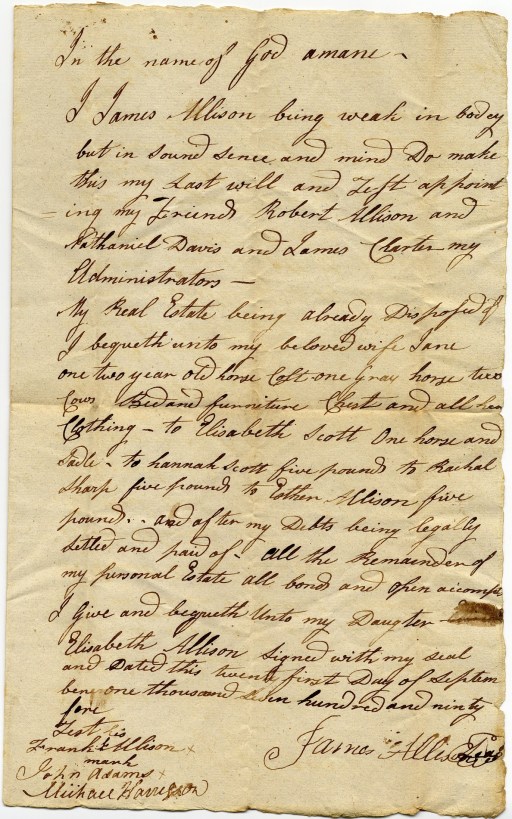 In the name of God amane -
I James Allison being weak in bodey
but in sound sence and mind Do make
this my Last will and Test appoint
=ing my Friends Robert Allison and
Nathaniel Davis and James Carter my
Administrators -
My Real Estate being already Disposed of
I bequeth unto my beloved wife Jane
one two year old horse Colt one gray horse two
Cows Bed and furniture Chest and all her
Clothing - to Elisabeth Scott One horse and
Sadle - to hannah Scott five pounds to Rachal
Sharp five pounds to Esther Allison five
pound - and after my Debts being legally
Setled and paid of - all the Remainder of
my personal Estate all bonds and open accompts
I Give and bequeth Unto my Daugter -
Elisabeth Allison Signed with my seal
and Dated this twenty first Day of Septem
ber one thousand Seven hundred and ninty
fore
Test his
Frank Allison x
mark
John Adams x
Michael Harrison
James Allison Seal